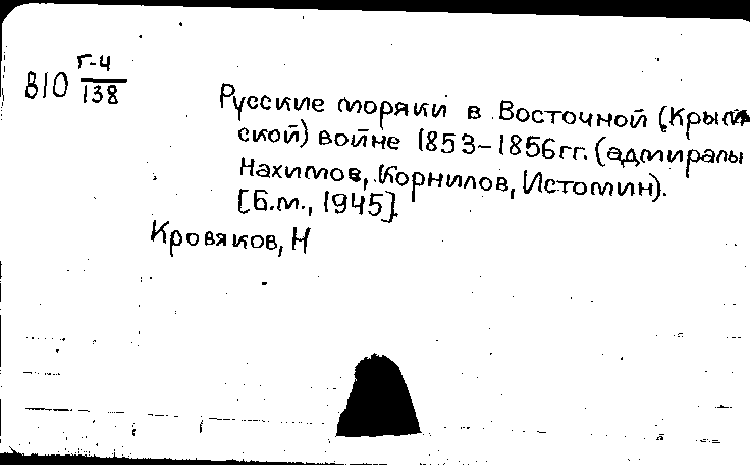 810 Г-4/138
Русские моряки в Восточной (Крым-
ской) войне 1853-1856 гг. (адмиралы
Нахимов, Корнилов, Истомин).
[Б.м., 1945].
Кровяков, Н